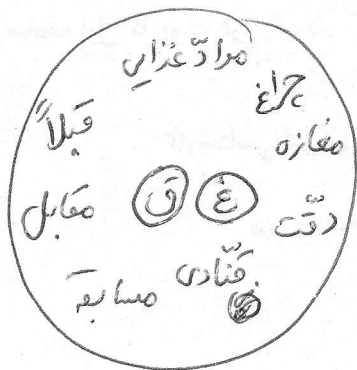 موادّ غذایی
چراغ
قبلاً
مغازه
غ
ق
مقابل
دقّت
قنّادی
مسابقه